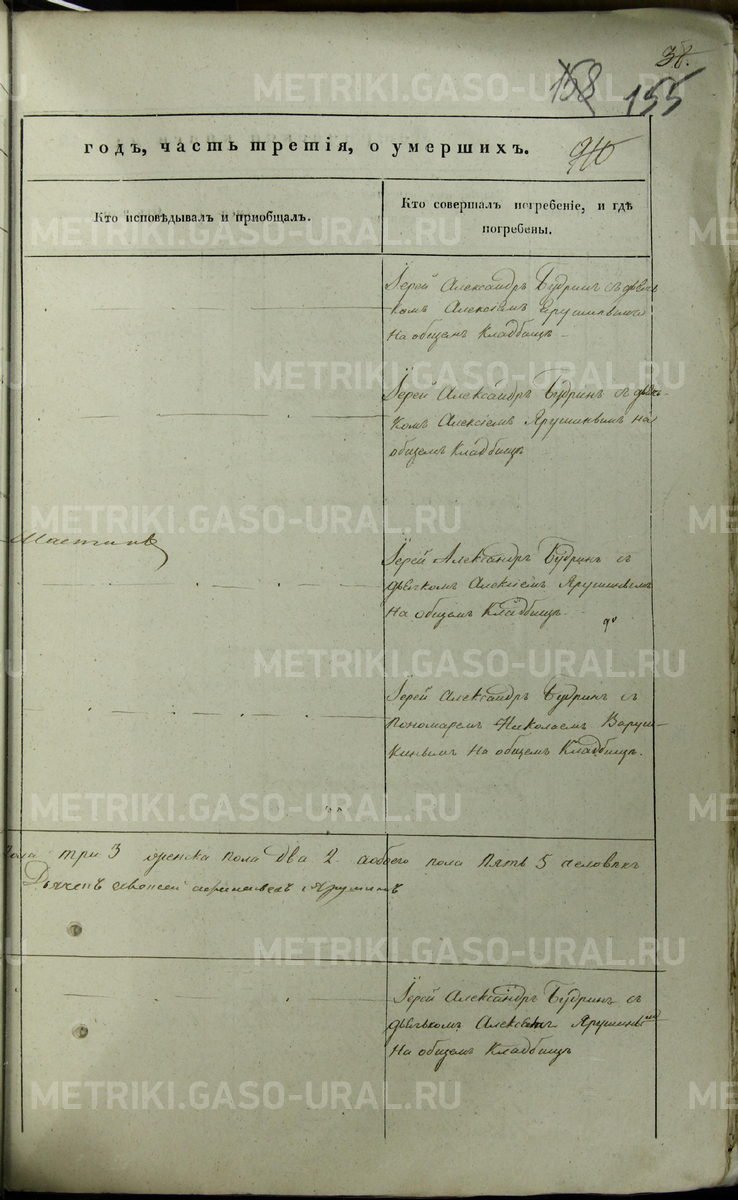 38.
158 155
годъ, часть третія, о умершихъ.
Кто исповѣдывалъ и пріобщалъ.
Кто совершалъ погребеніе, и гдѣ
погребены.
Іерей Александръ Будринъ съ дьяч-
комъ Алексіемъ Ярушинымъ
на общемъ кладбищѣ
Іерей Александръ Будринъ съ дьяч-
комъ Алексіемъ Ярушинымъ на
общемъ кладбищѣ
Іерей Александръ Будринъ съ
дьячкомъ Алексіемъ Ярушинымъ
на общемъ кладбищѣ.
Іерей Александръ Будринъ съ
Пономаремъ Николаемъ Варуш-
кинымъ на общемъ кладбищѣ.
пола три 3 женска пола два 2 а обоего пола пять 5 человѣкъ
Іерей Александръ Будринъ съ
дьячькомъ Алексѣемъ Ярушинымъ
на общемъ кладбищѣ
METRIKI.GASO-URAL.RU